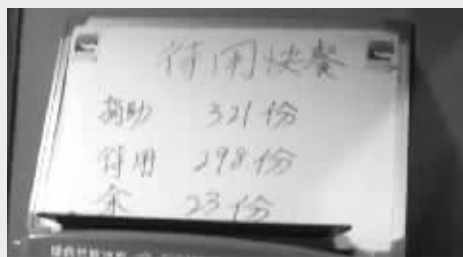 待用快餐
捐助 321份
待用 298份
余 23份